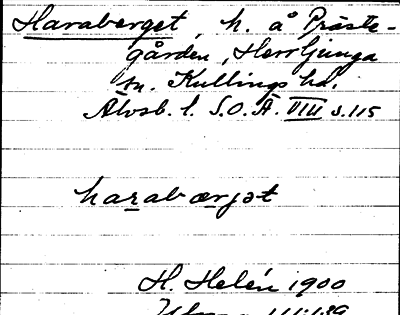 Haraberget, h. å Präste-
gården, Herrljunga
sn. Kullings hd.
Älvsb. l. S.O.Ä. VIII s.115
harabærjət
H. Helén 1900